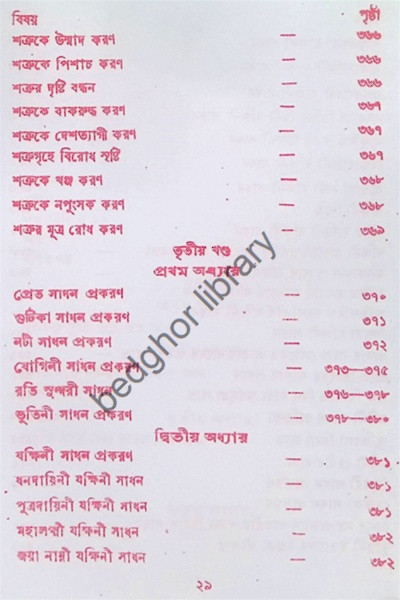 বিষয় পৃষ্ঠা
শত্রুকে উন্মাদ করণ — ৩৬৬
শত্রুকে পিশাচ করণ — ৩৬৬
শত্রুর দৃষ্টি বন্ধন — ৩৬৬
শত্রুকে বাকরুদ্ধ করণ — ৩৬৭
শত্রুকে দেশত্যাগী করণ — ৩৬৭
শত্রুগৃহে বিরোধ সৃষ্টি — ৩৬৭
শত্রুকে খঞ্জ করণ — ৩৬৮
শত্রুকে নপুংসক করণ — ৩৬৮
শত্রুর মূত্র রোধ করণ — ৩৬৯
তৃতীয় খণ্ড
প্রথম অধ্যায়
প্রেত সাধন প্রকরণ — ৩৭০
গুটিকা সাধন প্রকরণ — ৩৭১
নটী সাধন প্রকরণ — ৩৭২
যোগিনী সাধন প্রকরণ ৩৭৩—৩৭৫
রতি সুন্দরী সাধন ৩৭৬—৩৭৮
ভূতিনী সাধন প্রকরণ ৩৭৮—৩৮০
দ্বিতীয় অধ্যায়
যক্ষিনী সাধন প্রকরণ — ৩৮১
ধনদায়িনী যক্ষিনী সাধন — ৩৮১
পুত্রদায়িনী যক্ষিনী সাধন — ৩৮১
মহালক্ষ্মী যক্ষিনী সাধন — ৩৮২
জয়া নাম্নী যক্ষিনী সাধন — ৩৮২
২৯
bedghor library